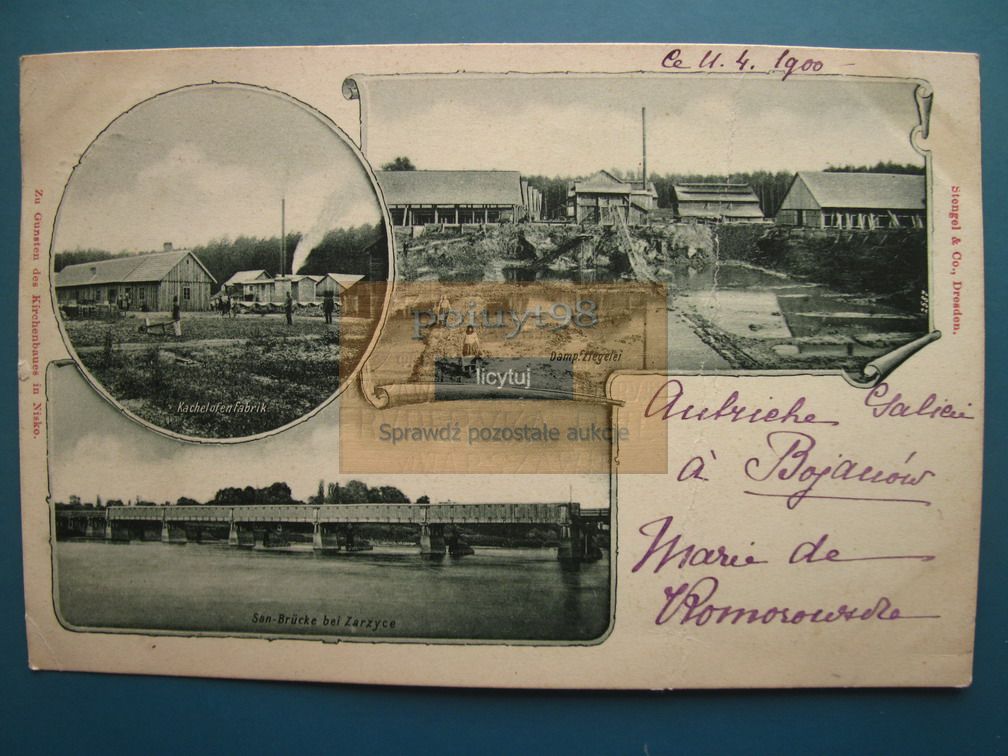 Ce 11. 4. 1900
Zu Gunsten des Kirchenbaues in Nisko.
Stengel & Co., Dresden.
Kachelofenfabrik
Dampfziegelei
poiuyt98
licytuj
Sprawdź pozostałe aukcje
Autriche Galicie
à Bojanów
Marie de
Komorowska
San-Brücke bei Zarzyce